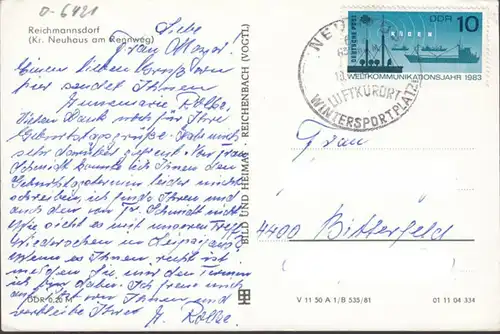 0-6421
Reichmannsdorf
(Kr. Neuhaus am Rennweg)
Liebe
Frau
Einen lieben Gruß von
hier sendet Ihnen
Annemarie Kolbe.
Vielen Dank noch für Ihre
Geburtstagsgrüße. Habe mich
sehr darüber gefreut. Von Frau
Schmidt konnte ich Ihnen den
Geburtstagstermin leider nicht
schreiben, ich fand Ihnen und
auch den von Fr. Schmidt nicht.
Wie sieht es mit unserem
Wiedersehen in Leipzig aus?
Wenn es Ihnen recht ist
melden Sie, und den Termin
ich bin dabei. Ich freue mich
auf von Ihnen und
verbleibe Ihre
A. Kolbe.
DDR 0,20 M
BILD UND HEIMAT · REICHENBACH (VOGTL)
DEUTSCHE POST
DDR 10
WELTKOMMUNIKATIONSJAHR 1983
LUFTKURORT
WINTERSPORTPLATZ
Frau
4400 Bitterfeld
V 11 50 A 1/B 535/81
01 11 04 334